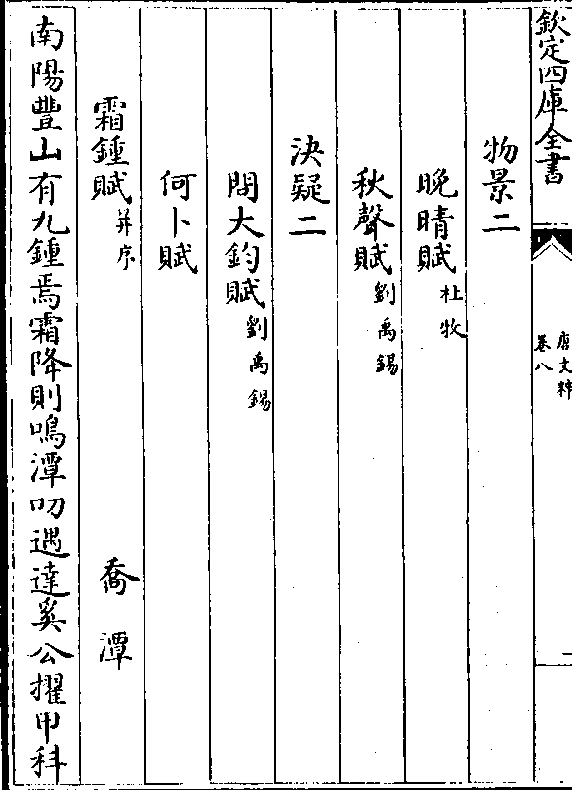 欽定四庫全書
唐文粹
卷八
二
物景二
晚晴賦杜牧
秋聲賦劉禹錫
決疑二
問大鈞賦劉禹錫
何卜賦
霜鍾賦并序 喬潭
南陽豐山有九鍾焉霜降則鳴潭叨遇達奚公擢甲科